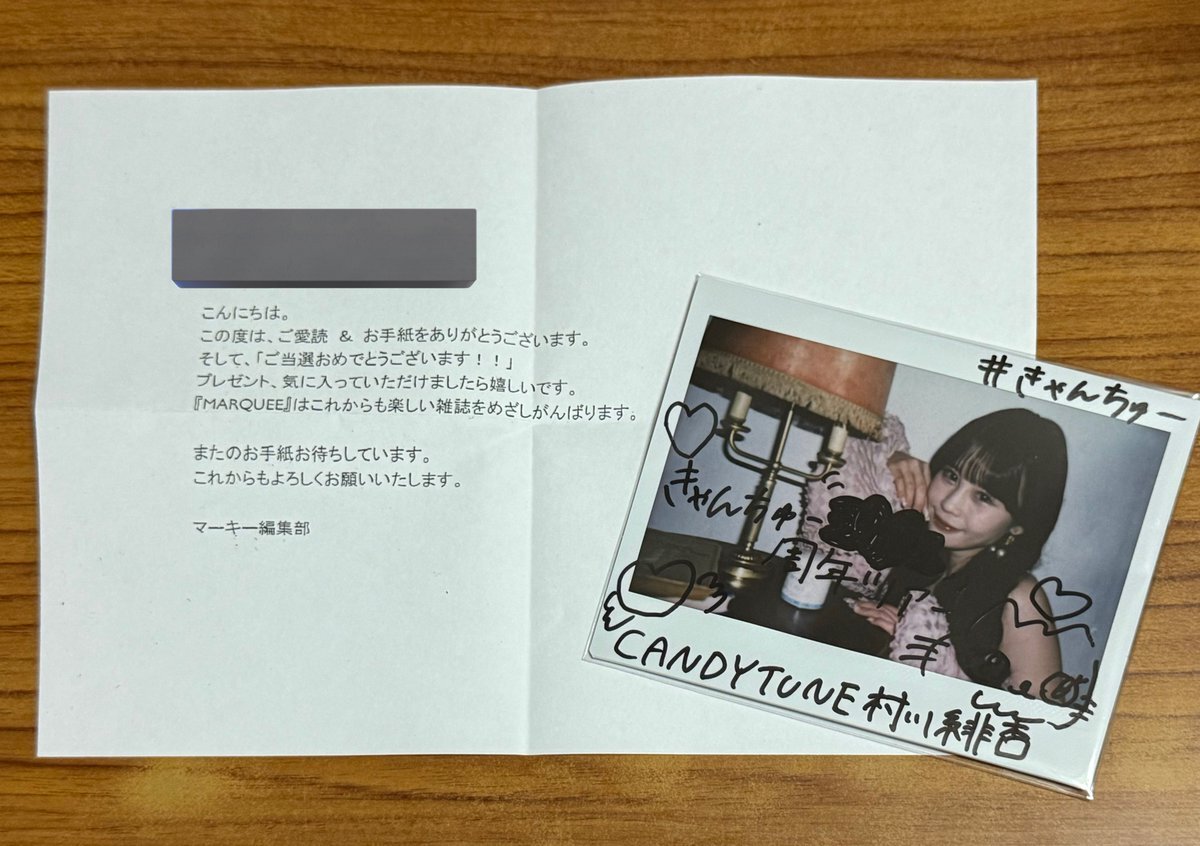 こんにちは。
この度は、ご愛読 & お手紙をありがとうございます。
そして、「ご当選おめでとうございます!!」
プレゼント、気に入っていただけましたら嬉しいです。
『MARQUEE』はこれからも楽しい雑誌をめざしがんばります。
またのお手紙お待ちしています。
これからもよろしくお願いいたします。
マーキー編集部
#きゃんちゅー
きゃんちゅー
周年ツアー
CANDYTUNE 村川緋杏